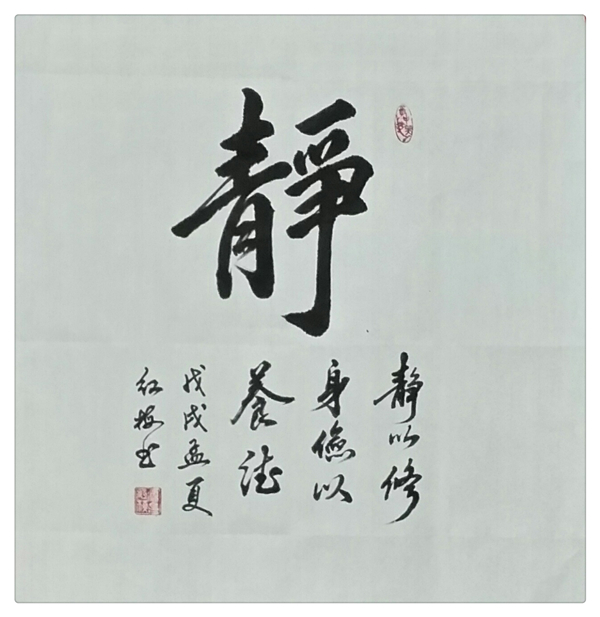 靜
靜以修
身儉以
養德
戊戌孟夏
红梅书